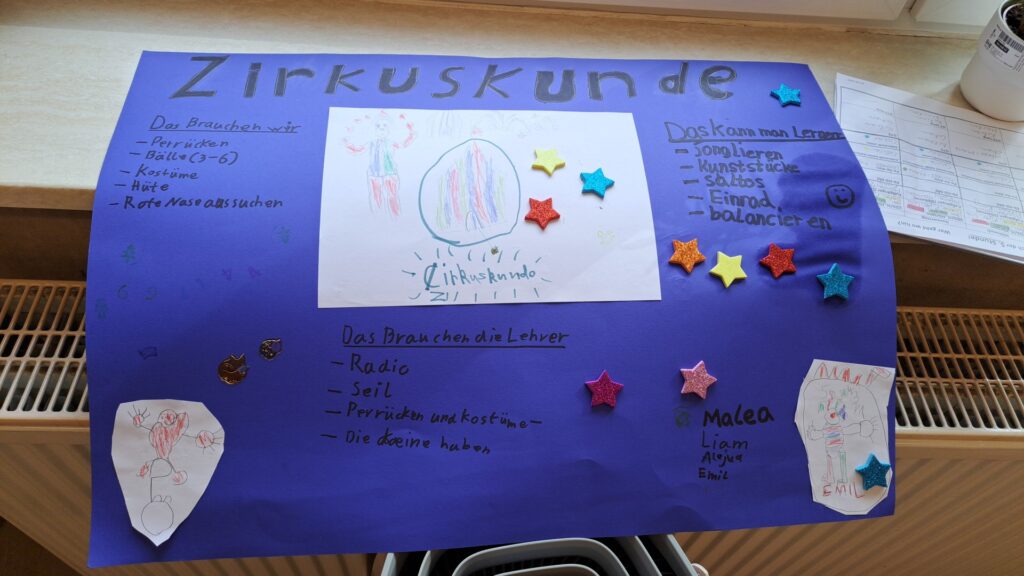 Zirkuskunde
Das Brauchen wir
- Perrücken
- Bälle (3-6)
- Kostüme
- Hüte
- Rote Nase aussuchen
Zirkuskundo
Das kann man Lernen
- Jonglieren
- Kunststücke
- saltos
- Einrad
- balancieren
Das Brauchen die Lehrer
- Radio
- Seil
- Perrücken und Kostüme -
- Die keine haben
Malea
Liam
Emil
EMIL